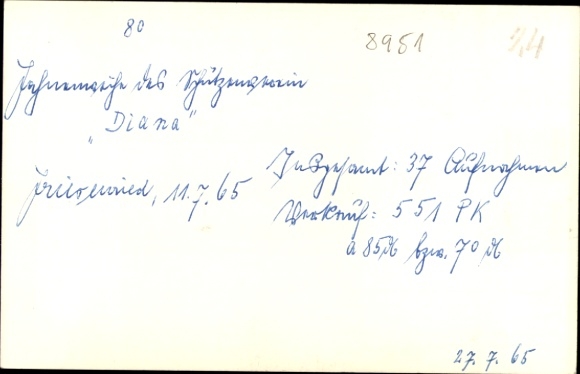 80
8951
24
Fahnenweihe des Schützenverein
„Diana"
Friesenried, 11.7.65
Insgesamt: 37 Aufnahmen
Verkauf: 551 PK
à 85 ₰ bzw. 70 ₰
27. 7. 65